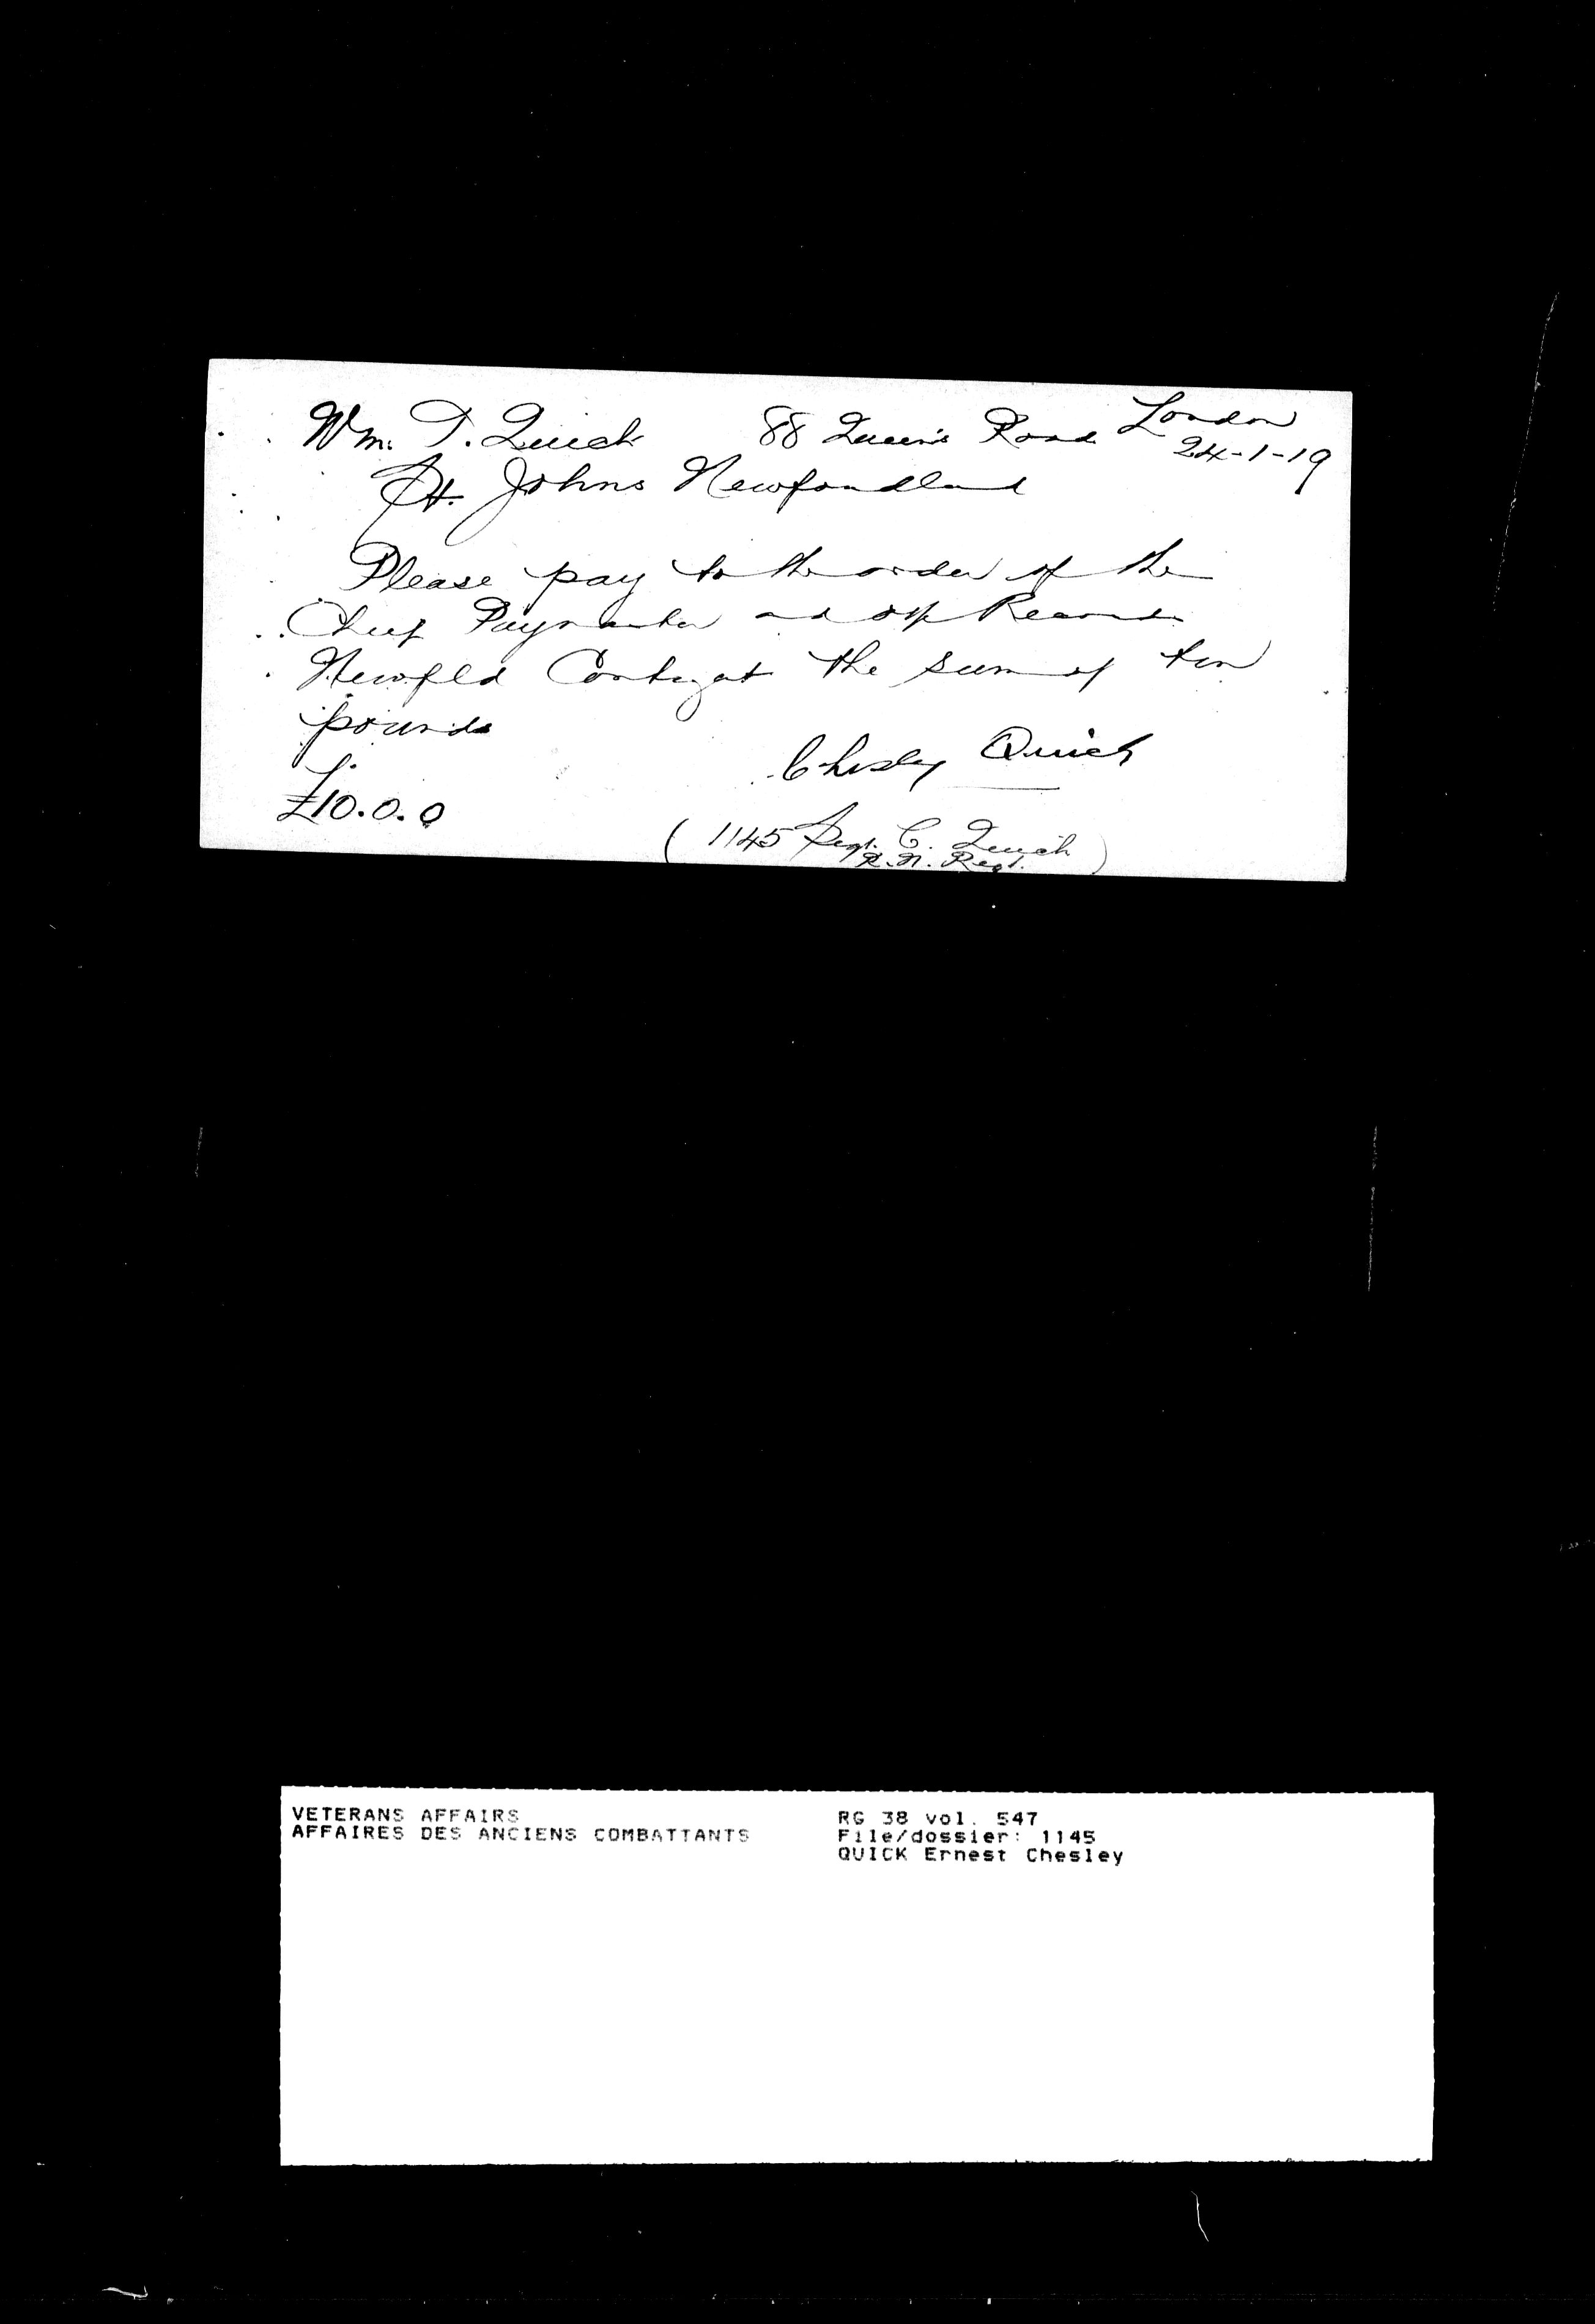 London
Wm. T. Quick 88 Queen's Road 24-1-19
St. Johns Newfoundland
Please pay to the order of the
Chief Paymaster and Records
Newfld Contingent the sum of ten
pounds
Chesley Quick
£10.0.0
(1145 Sergt. C. Quick)
R.N. Regt.
VETERANS AFFAIRS
AFFAIRES DES ANCIENS COMBATTANTS
RG 38 vol. 547
File/dossier: 1145
QUICK Ernest Chesley